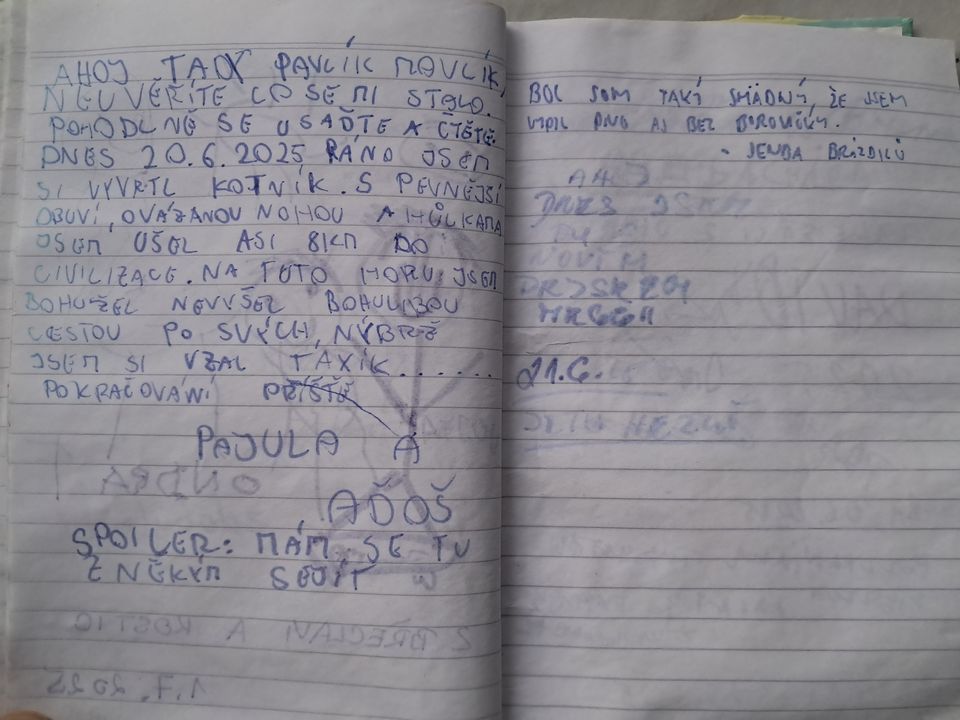 AHOJ TADY PAVLÍK MAVLÍK,
NEUVĚŘÍTE CO SE MI STALO.
POHODLNĚ SE USAĎTE A ČTĚTE.
DNES 20.6.2025 RÁNO JSEM
SI VYVRTL KOTNÍK. S PEVNĚJSÍ
OBUVÍ, OVÁZANOU NOHOU A HŮLKAMA
JSEM UŠEL ASI 8KM DO
CIVILIZACE. NA TUTO HORU JSEM
BOHUŽEL NEVYŠEL BOHULIBOU
CESTOU PO SVÝCH, NÝBRŽ
JSEM SI VZAL TAXÍK......
POKRAČOVÁNÍ PŘÍŠTĚ
PAJULA A
AĎOŠ
SPOILER: MÁM SE TU
Z NĚKÝM SEJÍT
ONDRA
Z BŘECLAVI A KOSTIC
1.7.2025
BOL SOM TAKÝ SMÄDNÝ, ŽE JSEM
VYPIL PIVO AJ BEZ BOROVIČKY.
- JENDA
DNES JSEM
21.6.